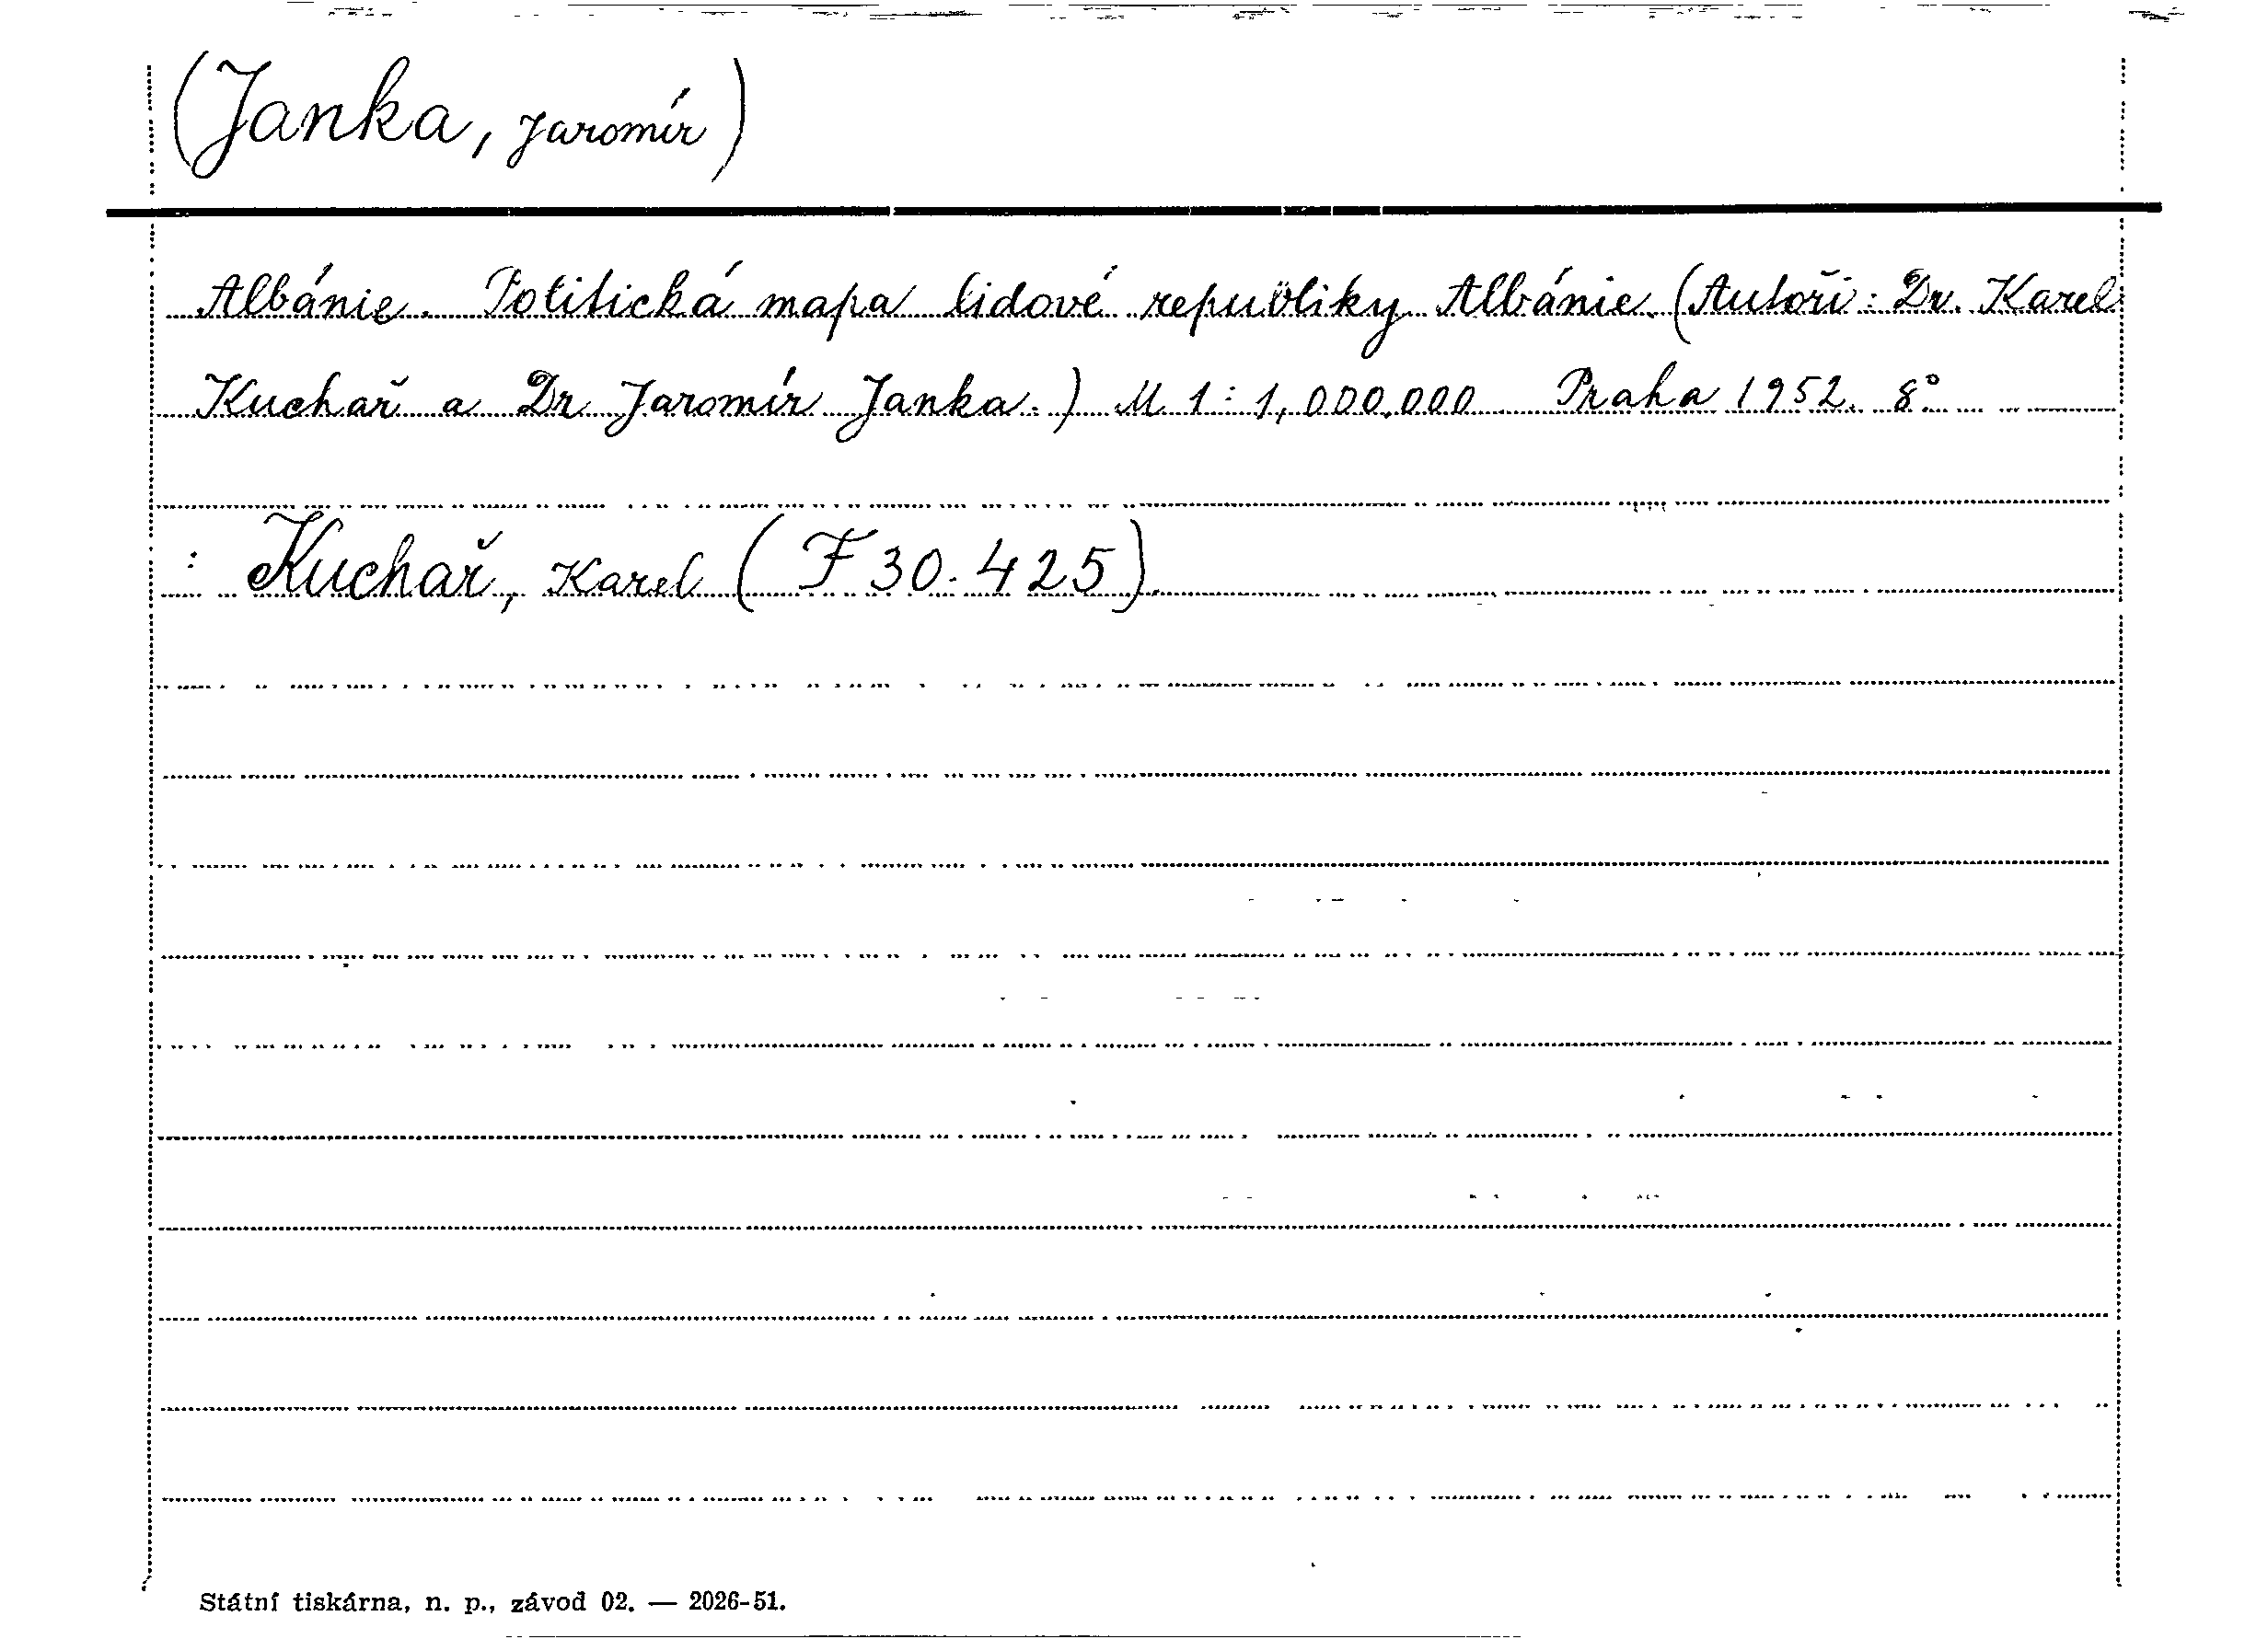 (Janka, Jaromír)
Albánie. Politická mapa lidové republiky Albánie. (Autoři: Dr. Karel
Kuchař a Dr Jaromír Janka.) M 1:1,000.000 Praha 1952. 8°
: Kuchař, Karel (F 30.425).
Státní tiskárna, n. p., závod 02. — 2026-51.